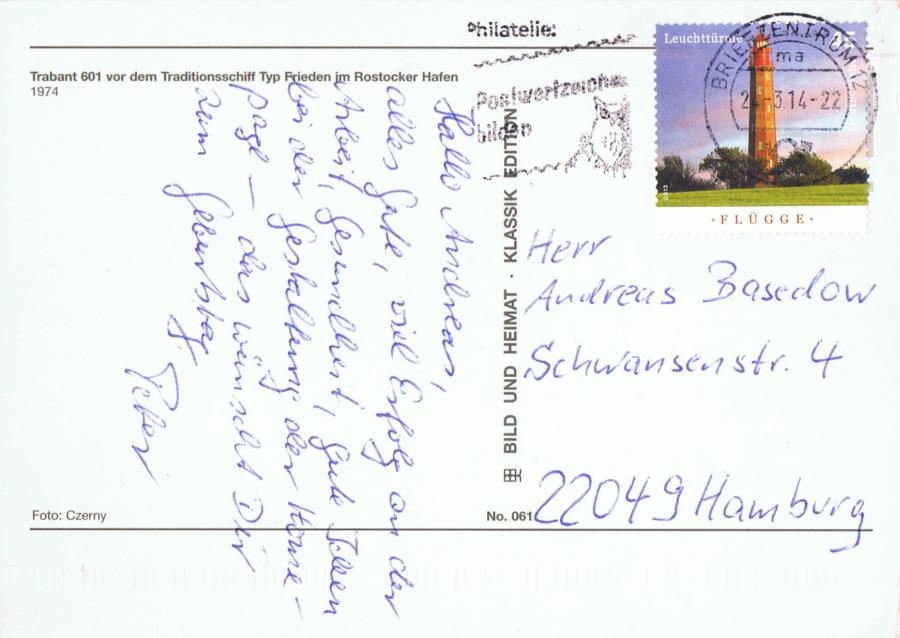 Philatelie:
Postwertzeichen
bilden
Leuchttürme
BRIEFZENTRUM 12
ma
2 -3.14-22
2013
·FLÜGGE·
Trabant 601 vor dem Traditionsschiff Typ Frieden im Rostocker Hafen
1974
Hallo Andreas,
alles Gute, viel Erfolg an der
Arbeit, Gesundheit, gute Ideen
bei der Gestaltung der Home-
page – das wünscht Dir
zum Geburtstag
Peter
BILD UND HEIMAT · KLASSIK EDITION
Herr
Andreas Basedow
Schwansenstr. 4
22049 Hamburg
Foto: Czerny
No. 061